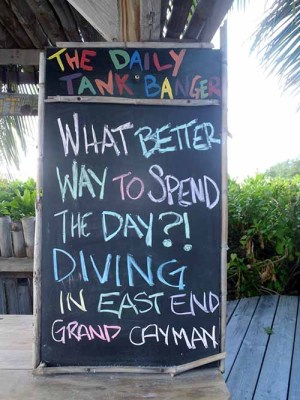 THE DAILY
TANK·BANGER
WHAT BETTER
WAY TO SPEND
THE DAY?!
DIVING
IN EAST END
GRAND CAYMAN